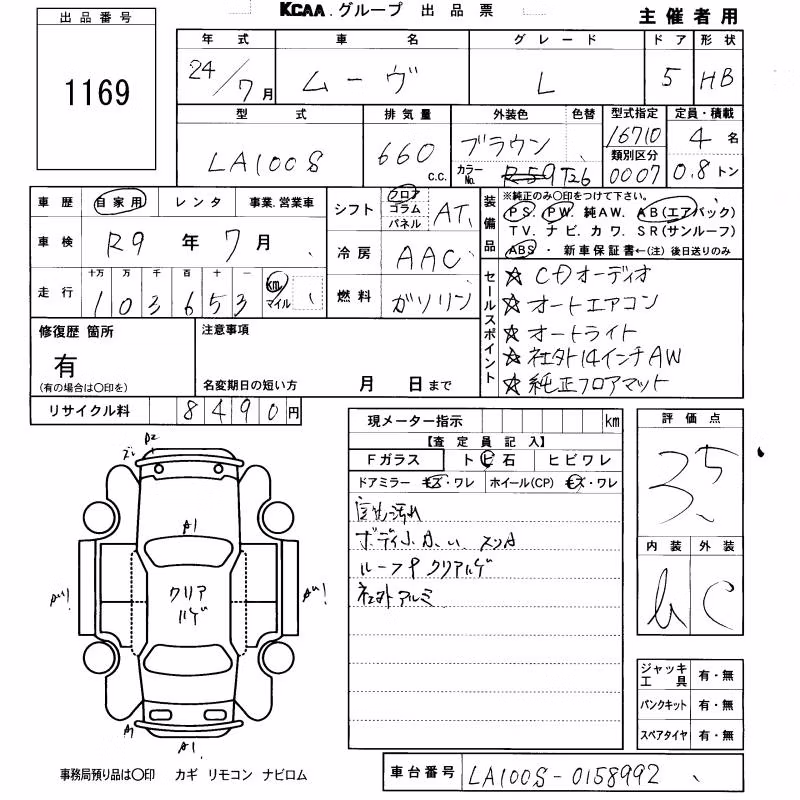 KCAA.グループ 出品票
主催者用
出品番号
1169
年式 車名 グレード ドア 形状
24/7月 ムーヴ L 5 HB
型式 排気量 外装色 色替 型式指定 定員・積載
LA100S 660 c.c. ブラウン 16710 4名
カラーNo. R59 T26 類別区分 0007 0.8トン
車歴 自家用 レンタ 事業.営業車
シフト フロア コラム パネル AT
車検 R9年7月
冷房 AAC
走行 十万 万 千 百 十 一
103653 km マイル
燃料 ガソリン
装備品
※純正のみ○印をつけて下さい。
PS. PW. 純AW. AB(エアバック)
TV. ナビ. カワ. SR(サンルーフ)
ABS ・ 新車保証書←(注) 後日送りのみ
セールスポイント
☆ CDオーディオ
☆ オートエアコン
☆ オートライト
☆ 社外14インチAW
☆ 純正フロアマット
修復歴 箇所
有
(有の場合は○印を)
注意事項
名変期日の短い方 月 日まで
リサイクル料 8490円
現メーター指示 km
【査定員記入】
Fガラス トビ石 ヒビワレ
ドアミラー キズ・ワレ ホイール(CP) キズ・ワレ
室内汚れ
ボディ小
ルーフ クリアハゲ
社外アルミ
評価点
3.5
内装 外装
C
A2
A1
クリア
ハゲ
A1
ジャッキ 工具 有・無
パンクキット 有・無
スペアタイヤ 有・無
事務局預り品は○印 カギ リモコン ナビロム
車台番号 LA100S-0158992